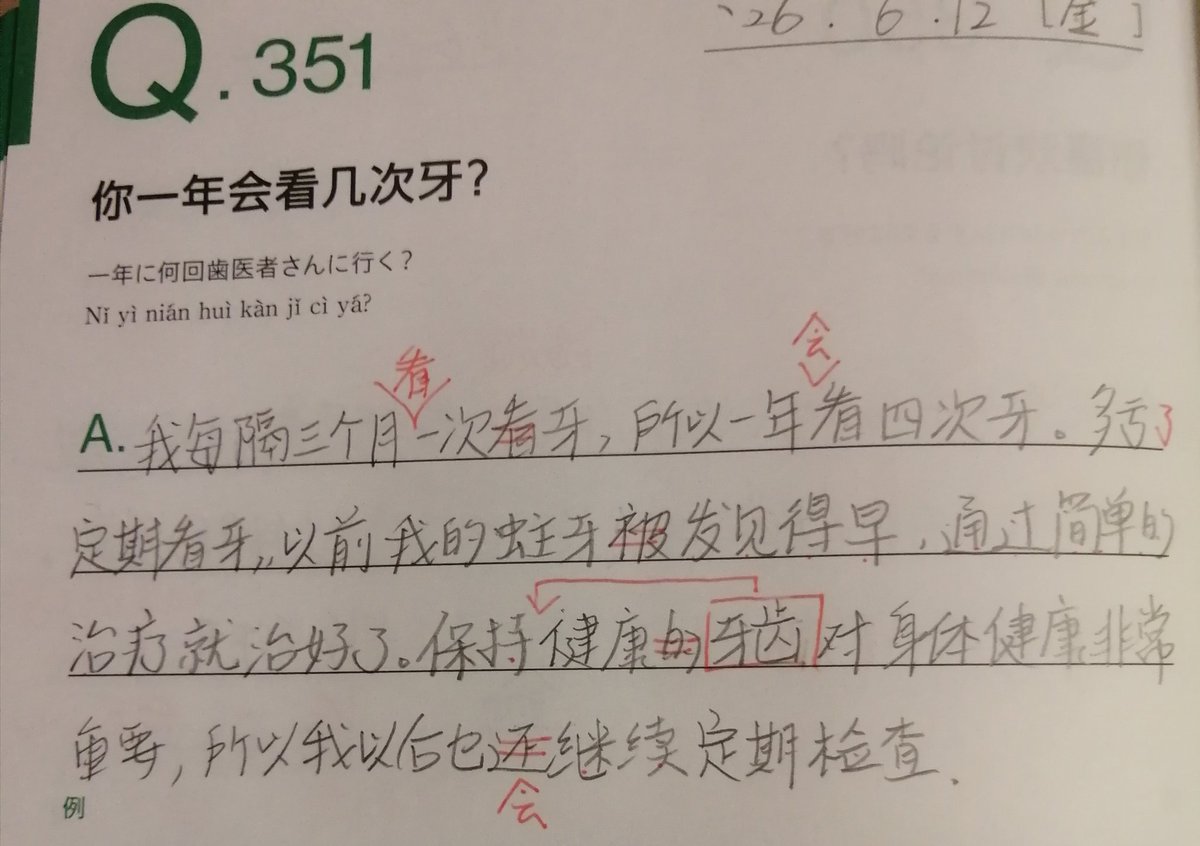 '26.6.12 [金]
Q.351
你一年会看几次牙?
一年に何回歯医者さんに行く?
Nǐ yì nián huì kàn jǐ cì yá?
看 会
A. 我每隔三个月一次看牙,所以一年看四次牙。多亏了
定期看牙,以前我的蛀牙被发见得早,通过简单的
治疗就治好了。保持健康的牙齿对身体健康非常
重要,所以我以后也还继续定期检查.
会
例